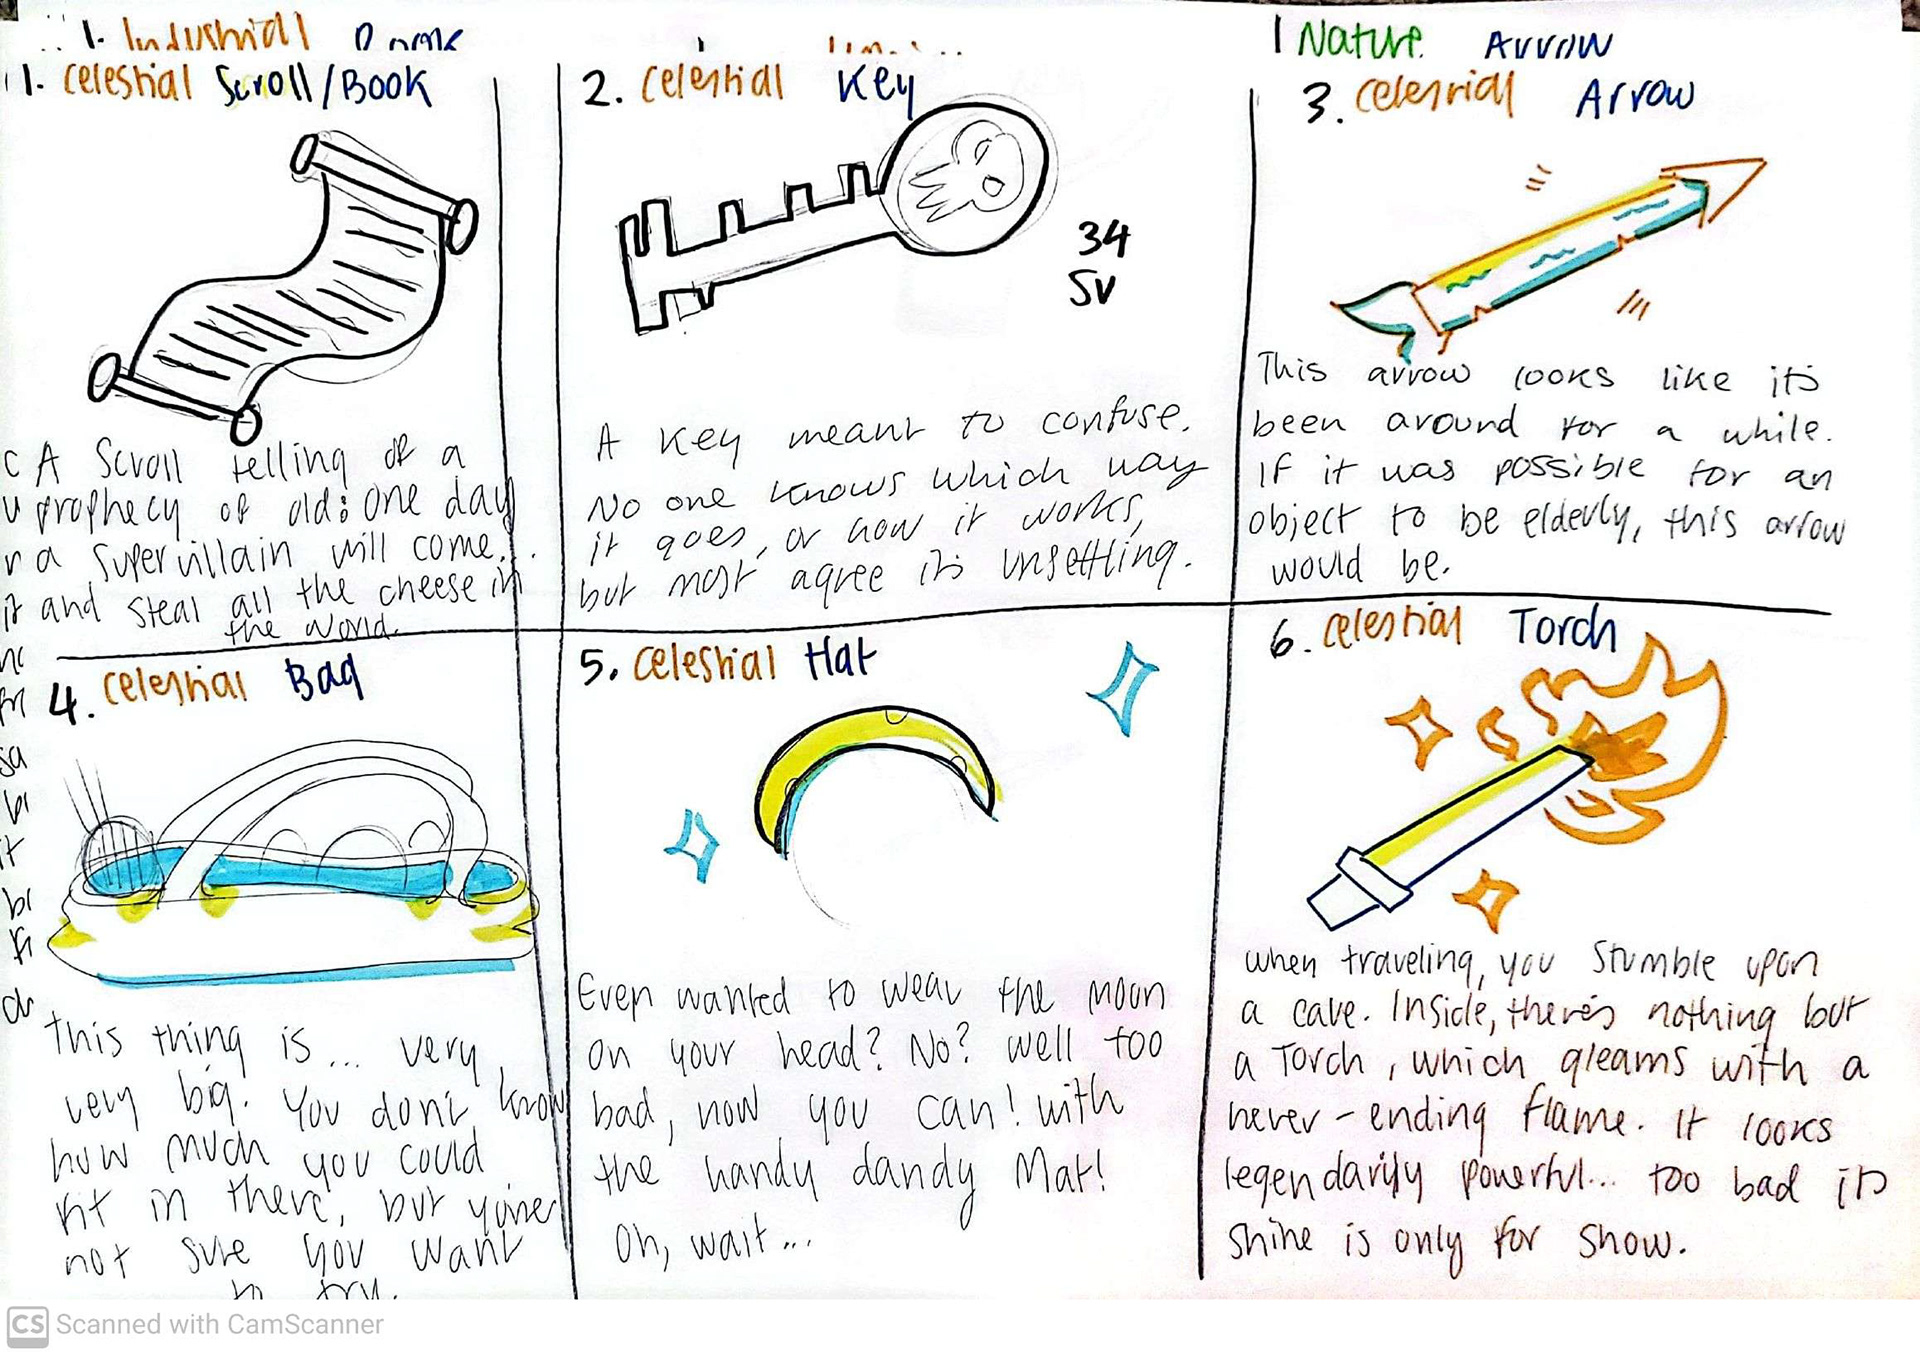 1. Industrial
1 Nature Arrow
1. Celestial Scroll/Book
A Scroll telling of a
prophecy of old: One day
a supervillain will come..
and steal all the cheese in
the world.
2. Celestial Key
34
SV
A key meant to confuse.
No one knows which way
it goes, or how it works,
but most agree it's unsettling.
3. Celestial Arrow
This arrow looks like it's
been around for a while.
If it was possible for an
object to be elderly, this arrow
would be.
4. Celestial Bag
This thing is... very
very big. You don't know
how much you could
fit in there, but you're
not sure you want
to try.
5. Celestial Hat
Ever wanted to wear the moon
on your head? No? well too
bad, now you can! with
the handy dandy Mat!
Oh, wait...
6. Celestial Torch
when traveling, you stumble upon
a cave. Inside, there's nothing but
a Torch, which gleams with a
never-ending flame. It looks
legendarily powerful... too bad its
shine is only for show.
CS Scanned with CamScanner